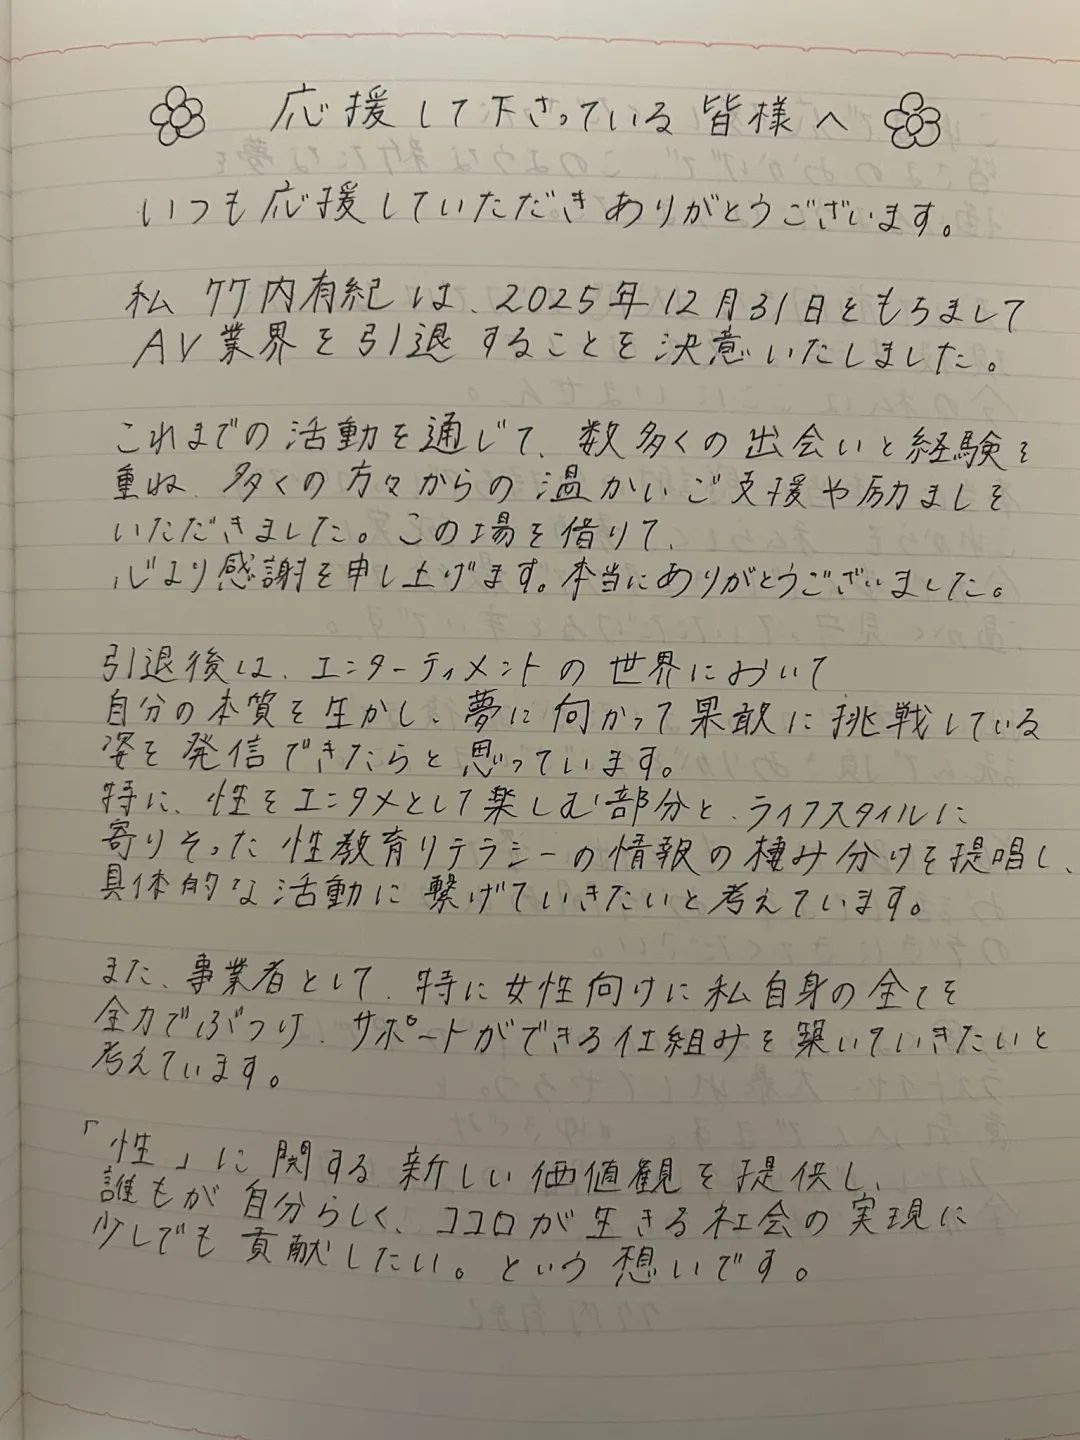 応援して下さっている皆様へ
いつも応援していただきありがとうございます。
私 竹内有紀は、2025年12月31日をもちまして
AV業界を引退することを決意いたしました。
これまでの活動を通じて、数多くの出会いと経験を
重ね、多くの方々からの温かいご支援や励ましを
いただきました。この場を借りて、
心より感謝を申し上げます。本当にありがとうございました。
引退後は、エンターティメントの世界において
自分の本質を生かし、夢に向かって果敢に挑戦している
姿を発信できたらと思っています。
特に、性をエンタメとして楽しむ部分と、ライフスタイルに
寄りそった性教育リテラシーの情報の棲み分けを提唱し、
具体的な活動に繋げていきたいと考えています。
また、事業者として、特に女性向けに私自身の全てを
全力でぶつけ、サポートができる仕組みを築いていきたいと
考えています。
「性」に関する新しい価値観を提供し、
誰もが自分らしく、ココロが生きる社会の実現に
少しでも貢献したい。という想いです。